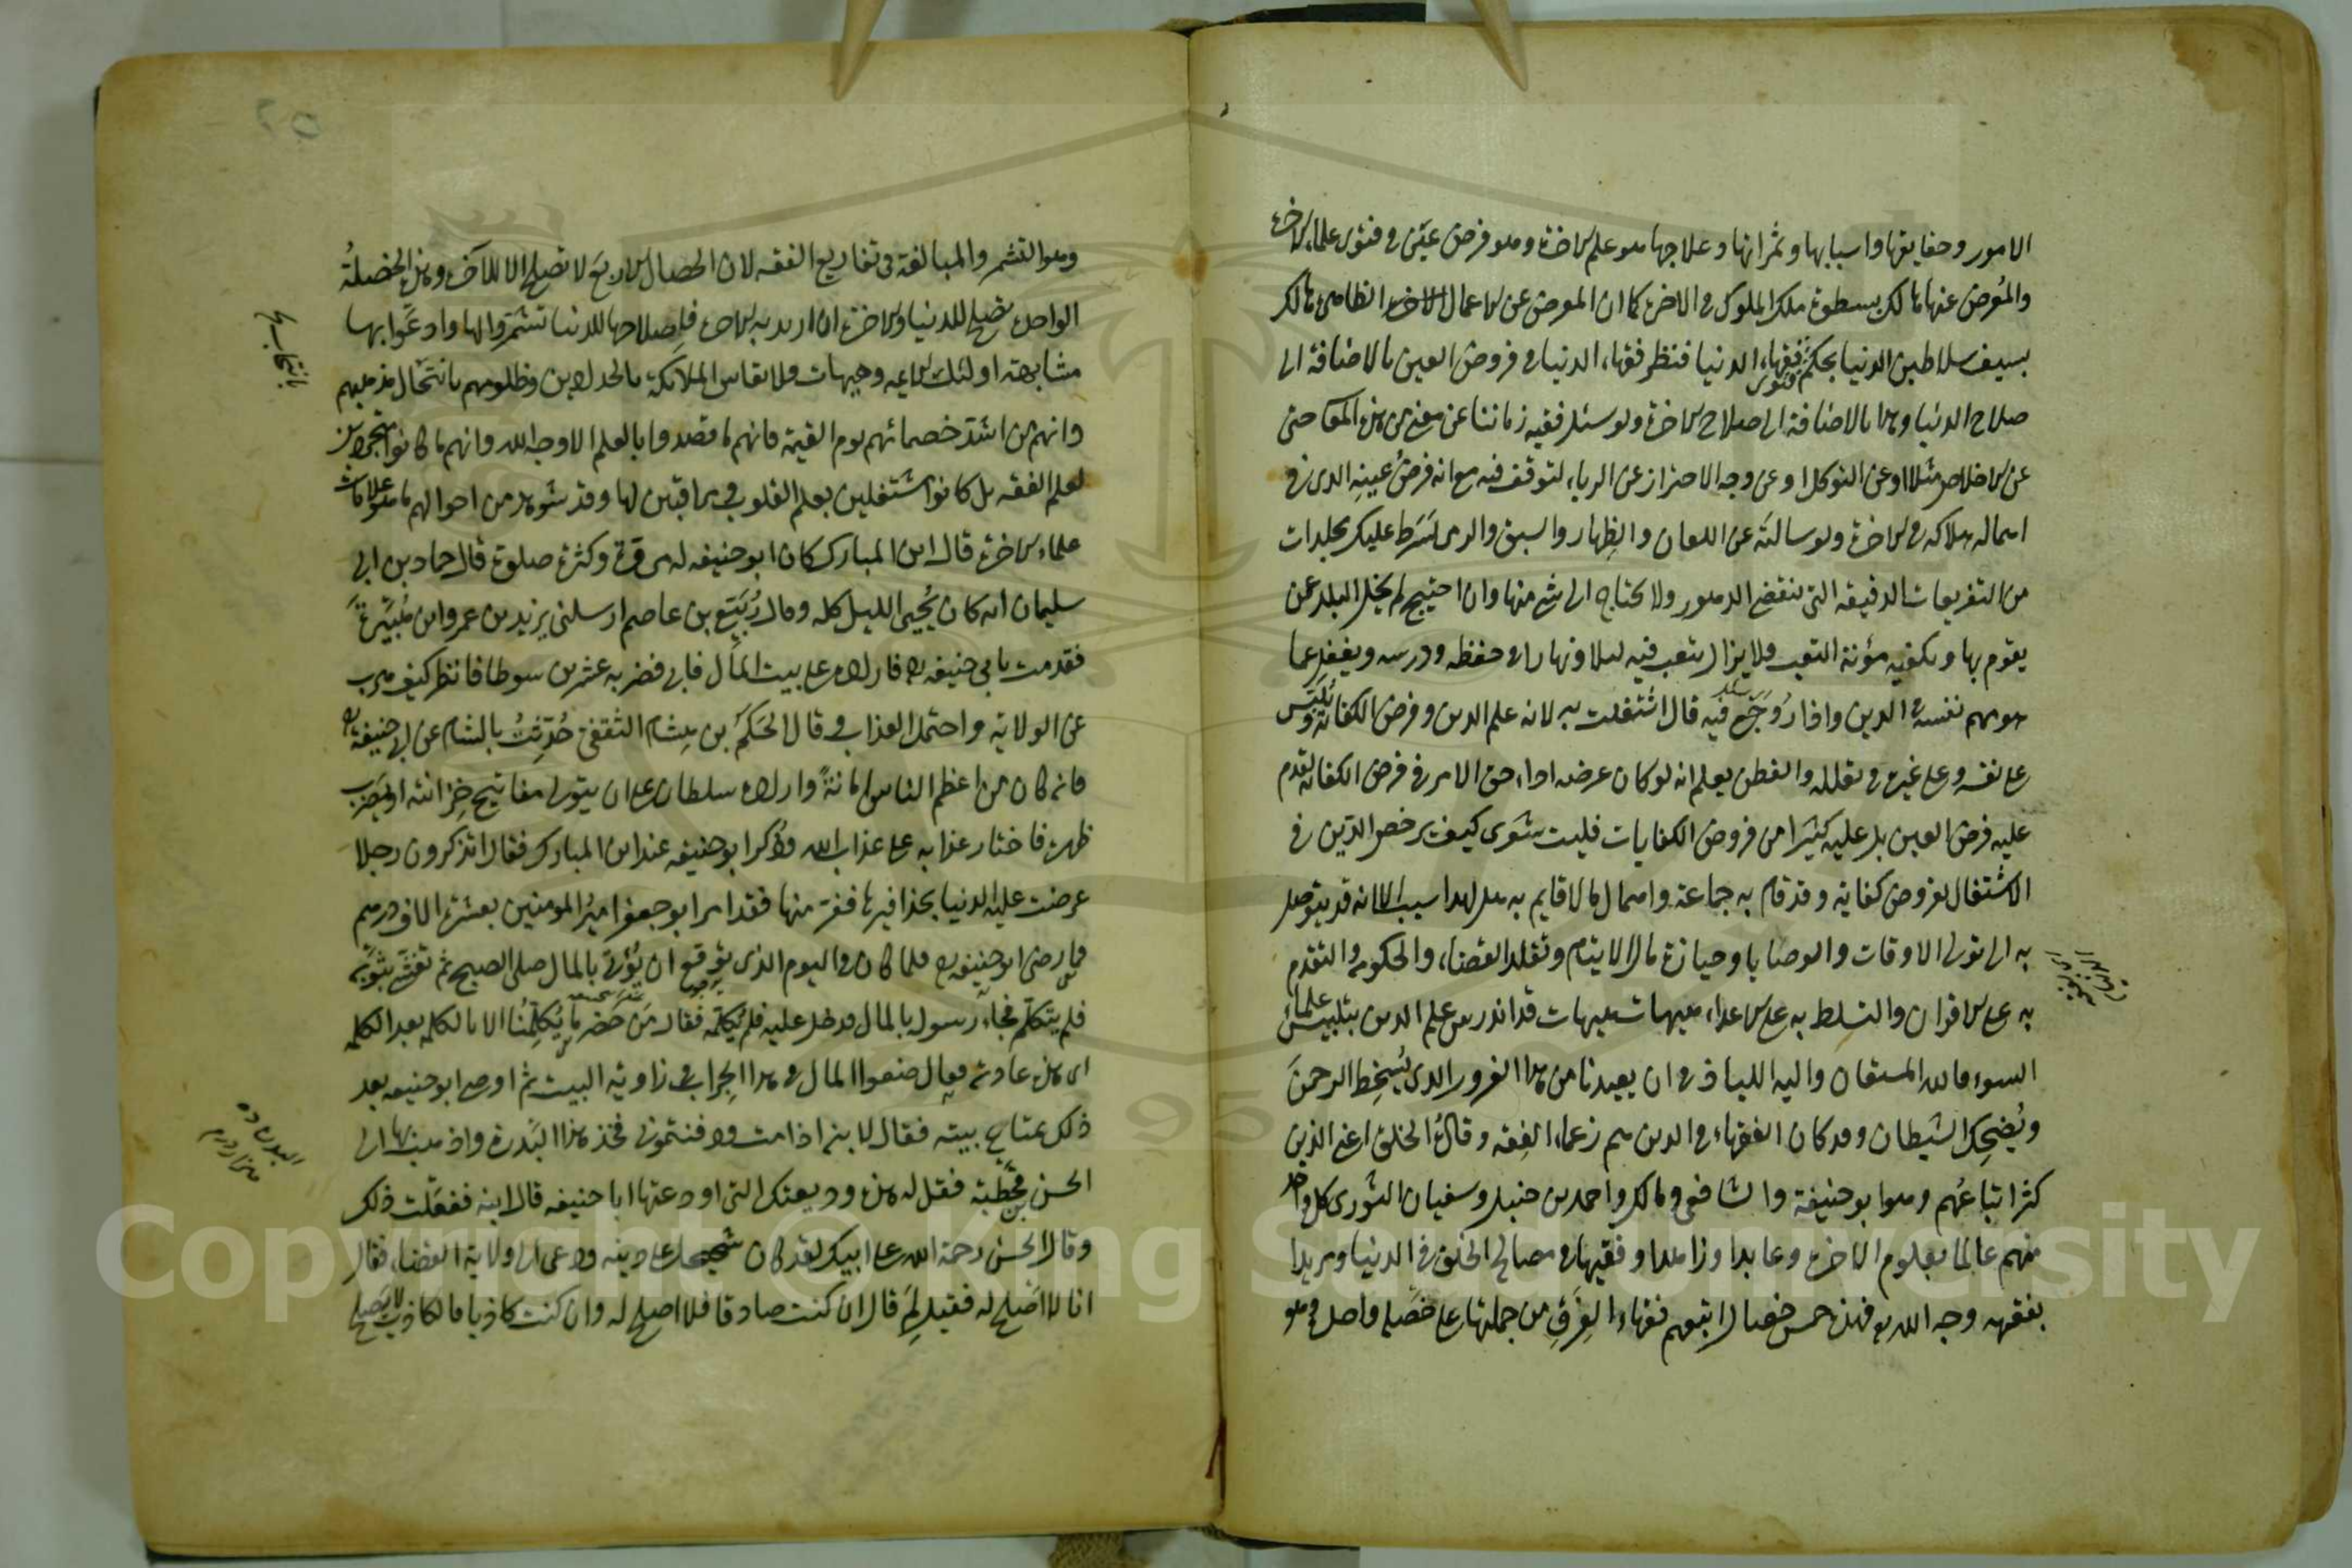 الامور وحقايقها واسبابها وثمراتها وعلاجها هو علم الاخرة وهو فرض عين في فتوى علماء الاخرة
والمعرض عنها هالك بسطوة ملك الملوك في الاخرة كما ان المعرض عن الاعمال الظاهرة هالك
بسيف سلاطين الدنيا بحكم فتوى فقهاء الدنيا فنظر فقهاء الدنيا في فروض العين بالاضافة الى
صلاح الدنيا وهذا بالاضافة الى صلاح الاخرة ولو سئل فقيه زماننا عن معنى من هذه المعاصى
عن الاخلاص مثلا او عن التوكل او عن وجه الاحتراز عن الرياء لتوقف فيه مع انه فرض عينه الذى في
اهماله هلاكه في الاخرة ولو سالته عن اللعان والظهار والسبق والرمى لسرد عليك مجلدات
من التفريعات الدقيقة التى تنقضى الدهور ولا يحتاج الى شئ منها وان احتيج لم يخل البلد عمن
يقوم بها ويكفيه مؤنة التعب فلا يزال يتعب فيه ليلا ونهارا في حفظه ودرسه ويغفل عما
هو مهم نفسه في الدين واذا روجع فيه قال اشتغلت به لانه علم الدين وفرض الكفاية ويلبس
على نفسه وعلى غيره في تعلله والفطن يعلم انه لو كان غرضه اداء حق الامر في فرض الكفاية لقدم
عليه فرض العين بل عليه كثيرا من فروض الكفايات فليت شعرى كيف يرخص الدين في
الاشتغال بفروض كفاية وقد قام به جماعة واهمال ما لا قايم به هل لهذا سبب الا انه قد يتوصل
به الى تولى الاوقات والوصايا وحيازة مال الايتام وتقلد القضاء والحكومة والتقدم
به على الاقران والتسلط به على الاعداء هيهات هيهات قد اندرس علم الدين بتلبيس علماء
السوء فالله المستعان واليه اللياذ في ان يعيذنا من هذا الغرور الذى يسخط الرحمن
ويضحك الشيطان وقد كان الفقهاء في الدين هم زعماء الفقه وقادة الخلق اعنى الذين
كثر اتباعهم وهو ابو حنيفة والشافعى ومالك واحمد بن حنبل وسفيان الثورى كل واحد
منهم عالما بعلوم الاخرة وعابدا وزاهدا وفقيها في مصالح الخلق في الدنيا ومريدا
بفقهه وجه الله فهذه خمس خصال اتبعهم فقهاء الفرق من جملتها على خصلة واحدة وهو
وهو التشمر والمبالغة فى تفاريع الفقه لان الخصال الاربع لا تصلح الا للآخرة وهذه الخصلة
الواحدة تصلح للدنيا والاخرة ان اريد به الاخرة فلصلاحها للدنيا تشمروا لها وادعوا بها
مشابهة اولئك الائمه وهيهات ولا تقاس الملائكة بالحدادين وظلموهم بانتحال مذهبهم
وانهم من اشد خصمائهم يوم القيمة فانهم ما قصدوا بالعلم الا وجه الله وانهم ما كانوا متجردين
لعلم الفقه بل كانوا مشتغلين بعلم القلوب ومراقبين لها وقد شوهد من احوالهم ما هو علامات
علماء الاخرة قال ابن المبارك كان ابو حنيفه له مروة وكثرة صلوة قال حماد بن ابى
سليمان انه كان يحيى الليل كله وقال ربيع بن عاصم ارسلنى يزيد بن عمرو ابن هبيرة
فقدمت بابى حنيفه فاراده على بيت المال فابى فضربه عشرين سوطا فانظر كيف هرب
عن الولاية واحتمل العذاب وقال الحكم بن هشام الثقفى حدثت بالشام عن ابى حنيفة
فانه كان من اعظم الناس امانة واراده سلطان على ان يتولى مفاتيح خزانته او يضرب
ظهره فاختار عذابه على عذاب الله وذكر ابو حنيفه عند ابن المبارك فقال اتذكرون رجلا
عرضت عليه الدنيا بحذافيرها ففر منها فقد امر ابو جعفر امير المومنين بعشرة الاف درهم
فما رضى ابو حنيفه فلما كان في اليوم الذى توقع ان يؤتى بالمال صلى الصبح ثم تغشى بثوبه
فلم يتكلم فجاء رسول بالمال فدخل عليه فلم يكلمه فقال من حضر ما يكلمنا الا بالكلمة بعد الكلمه
اى هذه عادته فقال ضعوا المال في هذا الجراب في زاوية البيت ثم اوصى ابو حنيفه بعد
ذلك بمتاع بيته فقال لابنه اذا مت ودفنتمونى فخذ هذا البدرة واذهب بها الى
الحسن بن قحطبة فقل له هذه وديعتك التى اودعتها ابا حنيفه قال ابنه ففعلت ذلك
وقال الحسن رحمة الله على ابيك لقد كان شحيحا على دينه ودعى الى ولاية القضاء فقال
انا لا اصلح له فقيل لم قال ان كنت صادقا فلا اصلح له وان كنت كاذبا فالكاذب لا يصلح